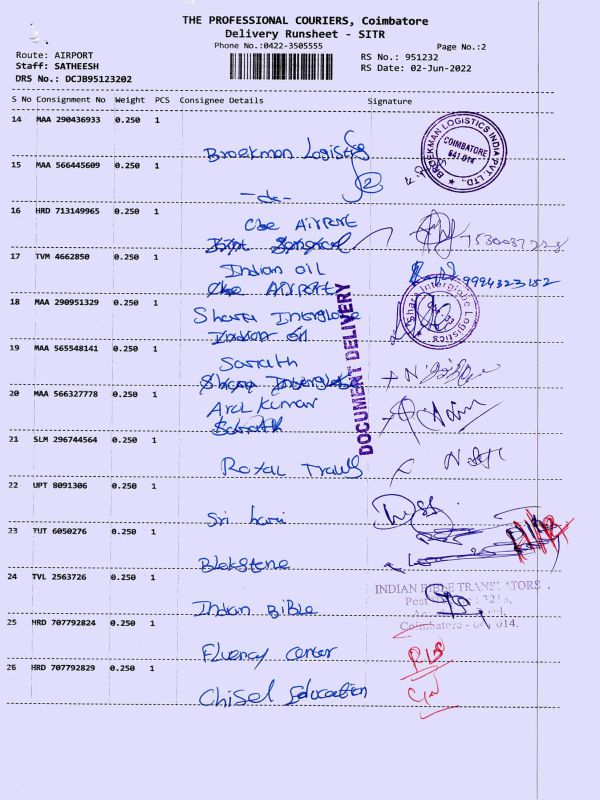 THE PROFESSIONAL COURIERS, Coimbatore
Delivery Runsheet - SITR
Phone No.:0422-3505555
Page No.:2
Route: AIRPORT
Staff: SATHEESH
DRS No.: DCJB95123202
RS No.: 951232
RS Date: 02-Jun-2022
S No Consignment No Weight PCS Consignee Details Signature
14 MAA 290436933 0.250 1
Broekman Logistics
BROEKMAN LOGISTICS INDIA PVT. LTD.,
COIMBATORE
641 014
15 MAA 566445609 0.250 1
-do-
16 HRD 713149965 0.250 1
Cbe Airport
17 TVM 4662850 0.250 1
Indian oil
9994323152
Cbe Airport
18 MAA 290951329 0.250 1
Share Interglobe
Share Interglobe Logistics
Indian oil
DOCUMENT DELIVERY
19 MAA 565548141 0.250 1
Sarath
Share Interglobe
20 MAA 566327778 0.250 1
Arul Kumar
Sarath
21 SLM 296744564 0.250 1
Royal Travels
22 UPT 8091306 0.250 1
Sri hari
23 TUT 6050276 0.250 1
Blekstone
24 TVL 2563726 0.250 1
Indian Bible
INDIAN BIBLE TRANSLATORS
Post
Coimbatore - 641 014.
25 HRD 707792824 0.250 1
Fluency Center
26 HRD 707792829 0.250 1
Chisel Education